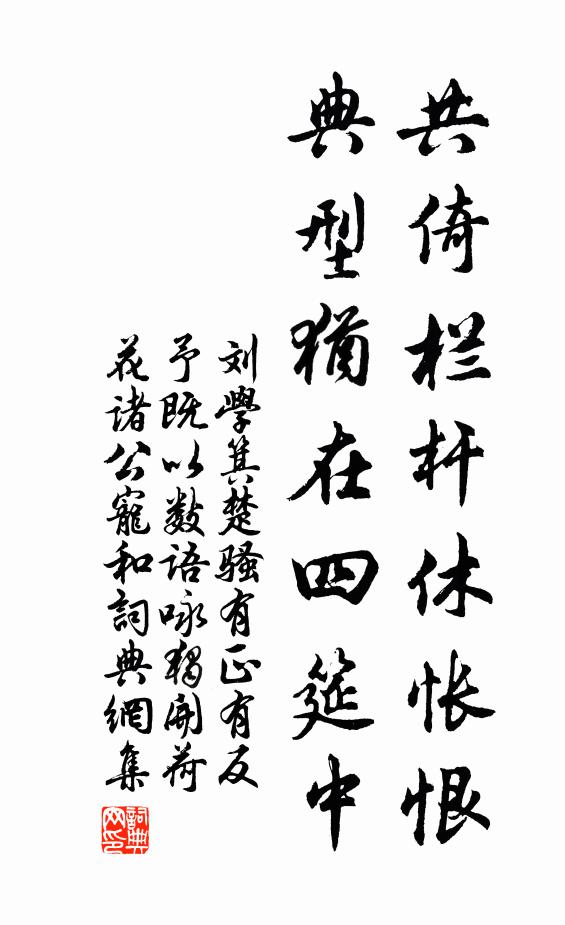 共倚栏杆休怅恨
典型犹在四筵中
刘学箕楚骚有正有反
予既以数语咏独开荷
花诸公宠和詞典網集
詞典网印